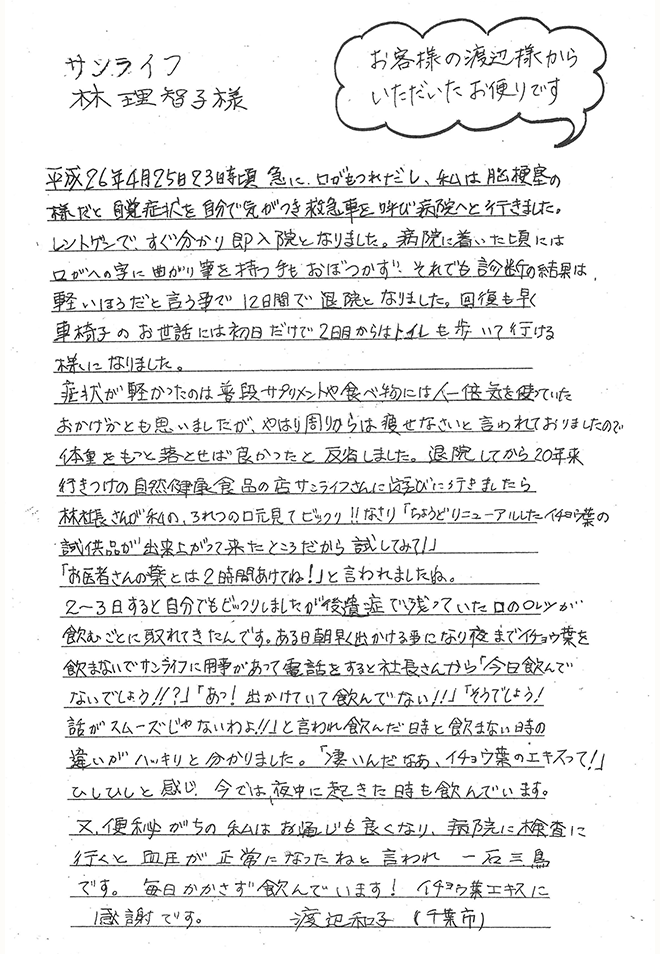 お客様の渡辺様から
いただいたお便りです
サンライフ
林理智子様
平成26年4月25日23時頃 急に、口がもつれだし、私は脳梗塞の
様だと自覚症状を自分で気がつき救急車を呼び病院へと行きました。
レントゲンで、すぐ分かり即入院となりました。病院に着いた頃には
口がへの字に曲がり筆を持つ手もおぼつかず、それでも診断の結果は、
軽いほうだと言う事で12日間で退院となりました。回復も早く
車椅子のお世話には初日だけで2日目からはトイレも歩いて行ける
様になりました。
症状が軽かったのは普段サプリメントや食べ物には人一倍気を使っていた
おかげかとも思いましたが、やはり周りからは痩せなさいと言われておりましたので
体重をもっと落とせば良かったと反省しました。退院してから20年来
行きつけの自然健康食品の店サンライフさんに遊びに行きましたら
林社長さんが私の、つれつの口元見てビックリ!!なさり「ちょうどリニューアルしたイチョウ葉の
試供品が出来上がって来たところだから試してみて!」
「お医者さんの薬とは2時間あけてね!」と言われましたね。
2〜3日すると自分でもビックリしましたが後遺症で残っていた口のロレツが
飲むごとに取れてきたんです。ある日朝早く出かける事になり夜までイチョウ葉を
飲まないでサンライフに用事があって電話をすると社長さんから「今日飲んで
ないでしょう!!?」「あっ!出かけていて飲んでない!!」「そうでしょう!
話がスムーズじゃないわよ!!」と言われ飲んだ時と飲まない時の
違いがハッキリと分かりました。「凄いんだなあ、イチョウ葉のエキスって!」
ひしひしと感じ 今では、夜中に起きた時も飲んでいます。
又、便秘がちの私はお通じも良くなり、病院に検査に
行くと血圧が正常になったねと言われ 一石三鳥
です。毎日かかさず飲んでいます! イチョウ葉エキスに
感謝です。 渡辺和子 (千葉市)